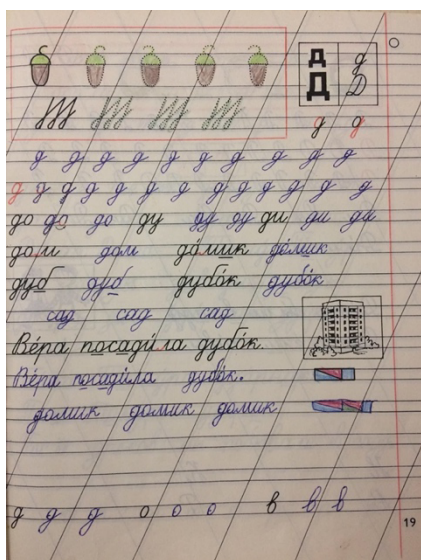 д д
Д Д
д д
д д д д д д д д д д
д д д д д д д д д д д д д
до до до ду ду ду ди ди ди
дом дом до́мик до́мик
дуб дуб дубо́к дубо́к
сад сад сад
Ве́ра посади́ла дубо́к.
Ве́ра посади́ла дубо́к.
домик домик домик
д д д о о о в в в
19